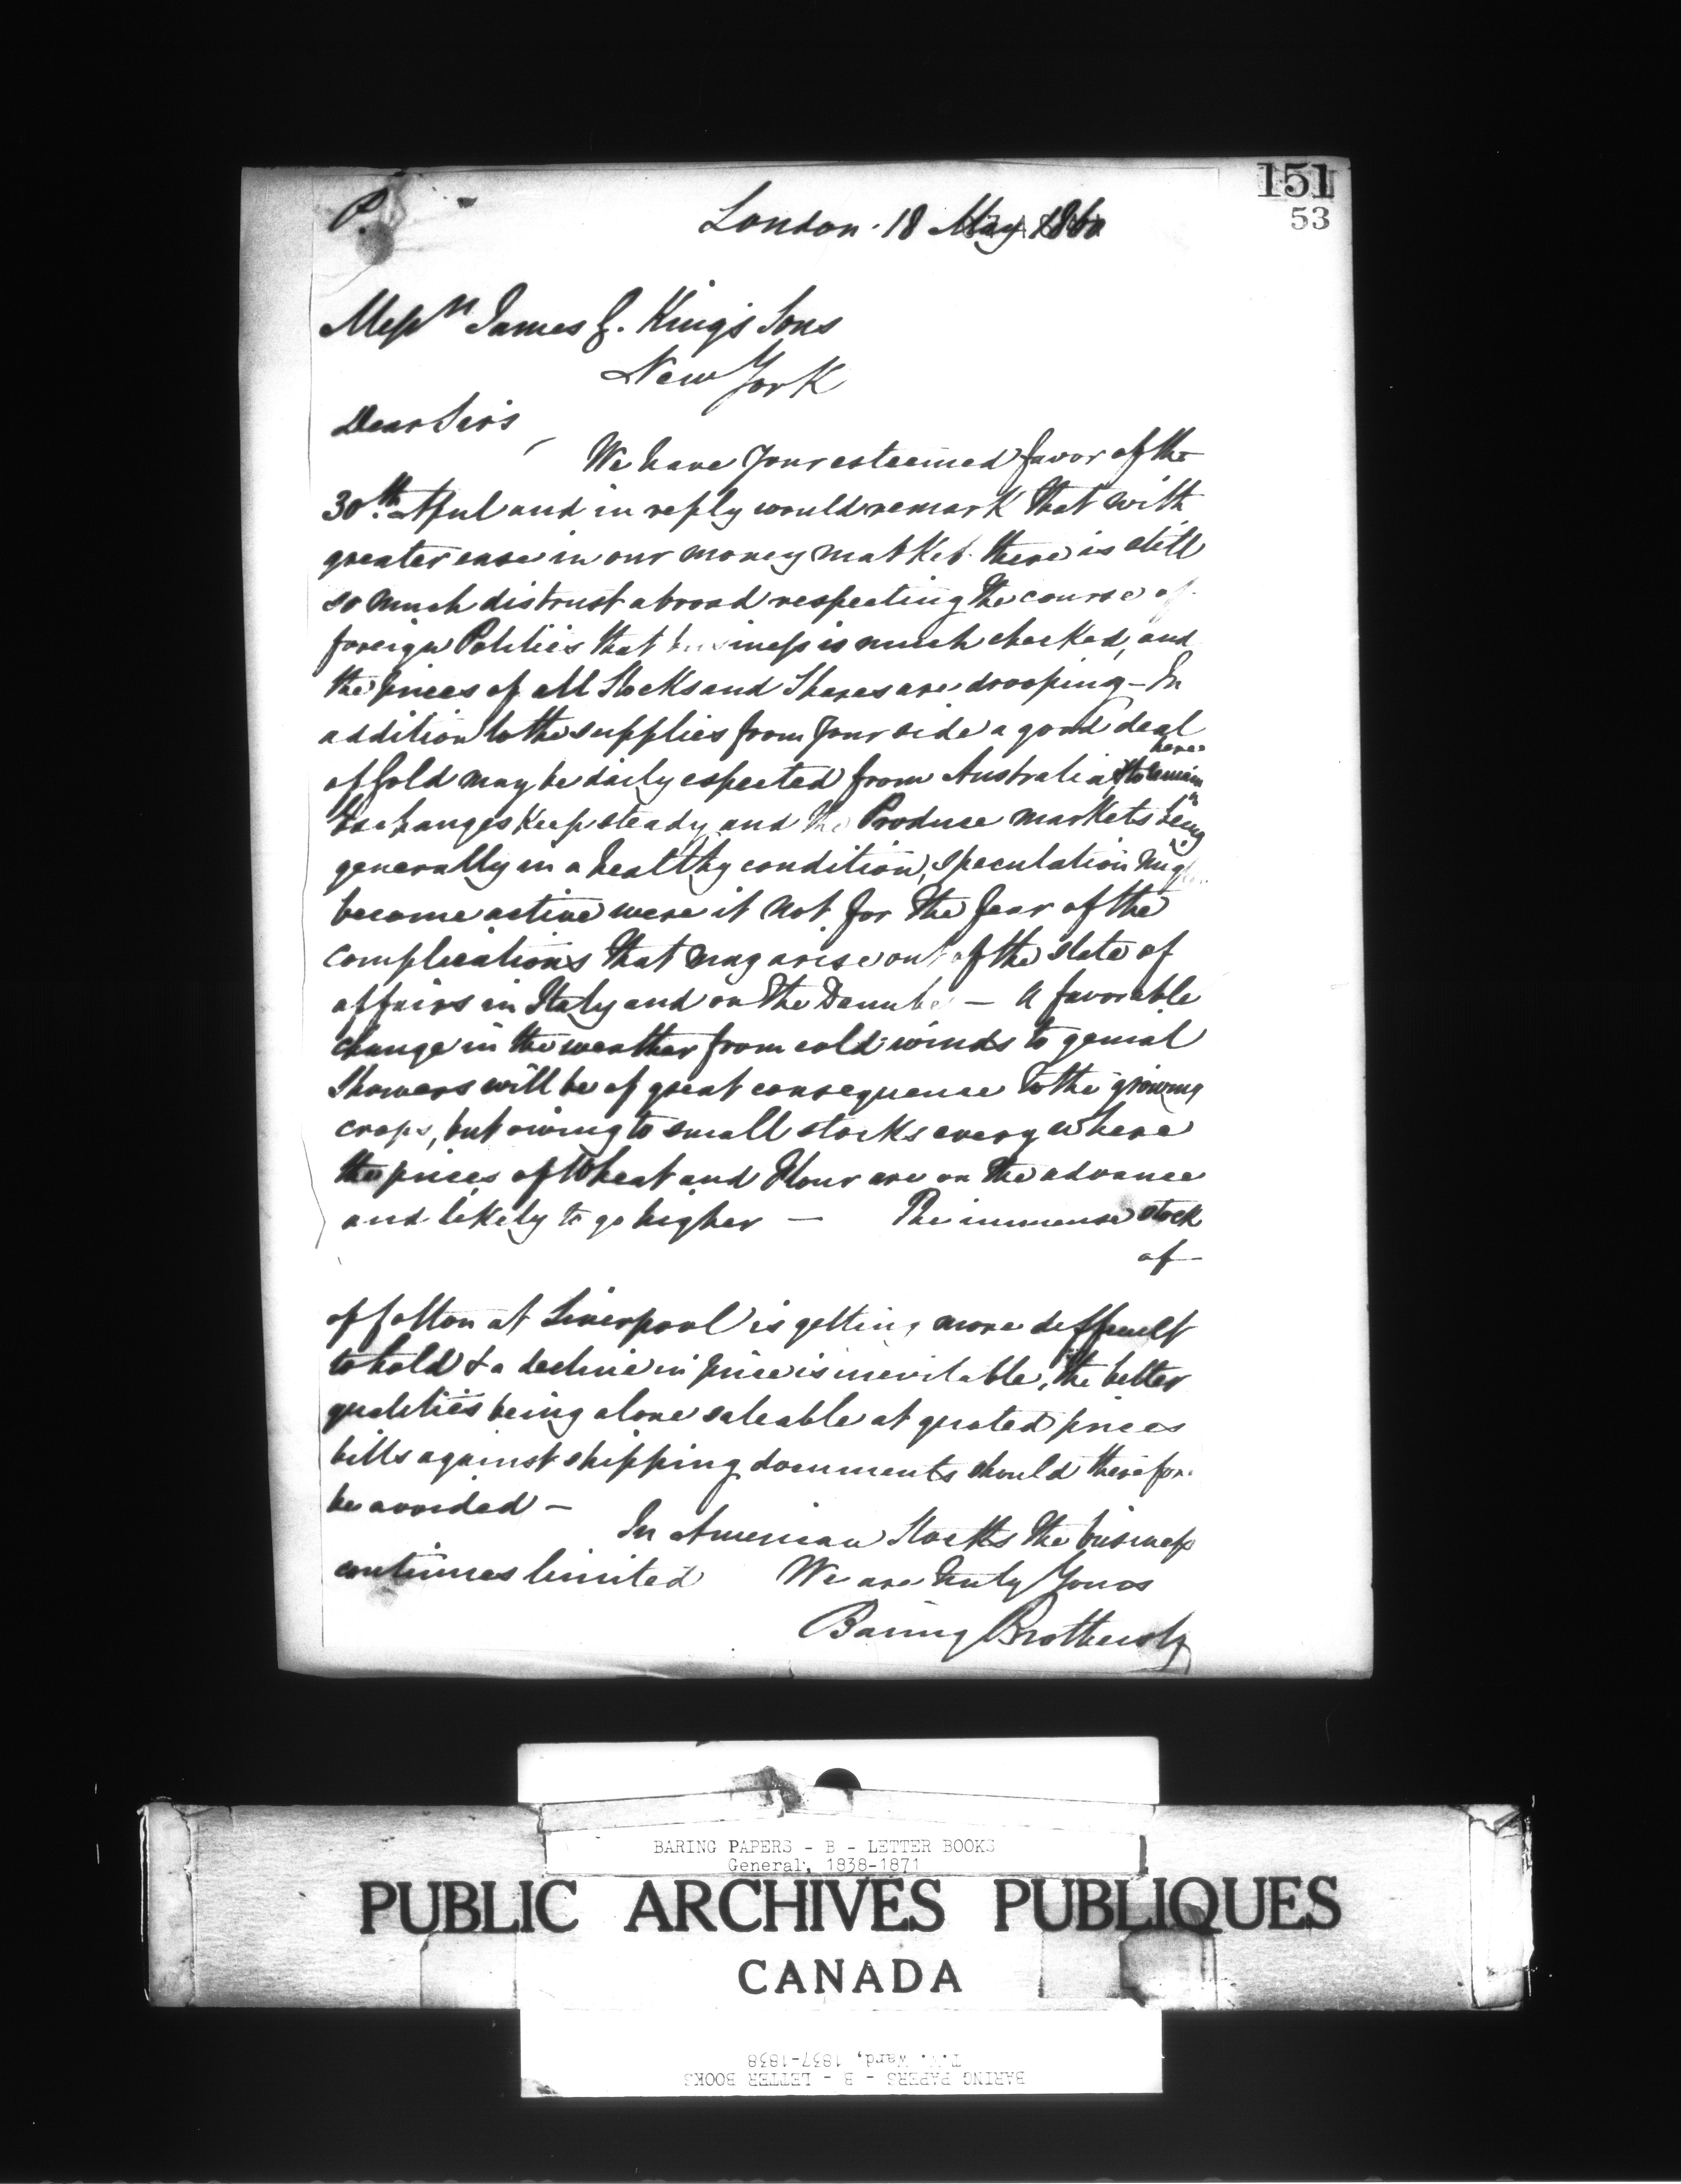 151
53
P.
London 18 May 1860
Mess.rs James G. King's Sons
New York
Dear Sirs,
We have your esteemed favor of the
30.th April and in reply would remark that with
greater ease in our money market there is still
so much distrust abroad respecting the course of
foreign Politics that business is much checked, and
the prices of all Stocks and Shares are drooping - In
addition to the supplies from your side a good deal
of Gold may be daily expected from Australia, the
here
Exchanges keep steady and the Produce markets being
generally in a healthy condition, speculation might
become active were it not for the fear of the
complications that may arise out of the state of
affairs in Italy and on the Danube - A favorable
change in the weather from cold winds to genial
showers will be of great consequence to the growing
crops, but owing to small stocks every where
the prices of Wheat and Flour are on the advance
and likely to go higher - The immense stock
of
of Cotton at Liverpool is getting more difficult
to hold & a decline in price is inevitable, the better
qualities being alone saleable at quoted prices
bills against shipping documents should therefore
be avoided -
In American Stocks the business
continues limited We are truly Yours
Baring Brothers & Co
BARING PAPERS - B - LETTER BOOKS
General, 1838-1871
PUBLIC ARCHIVES PUBLIQUES
CANADA
T.W. Ward, 1837-1838
BARING PAPERS - B - LETTER BOOKS